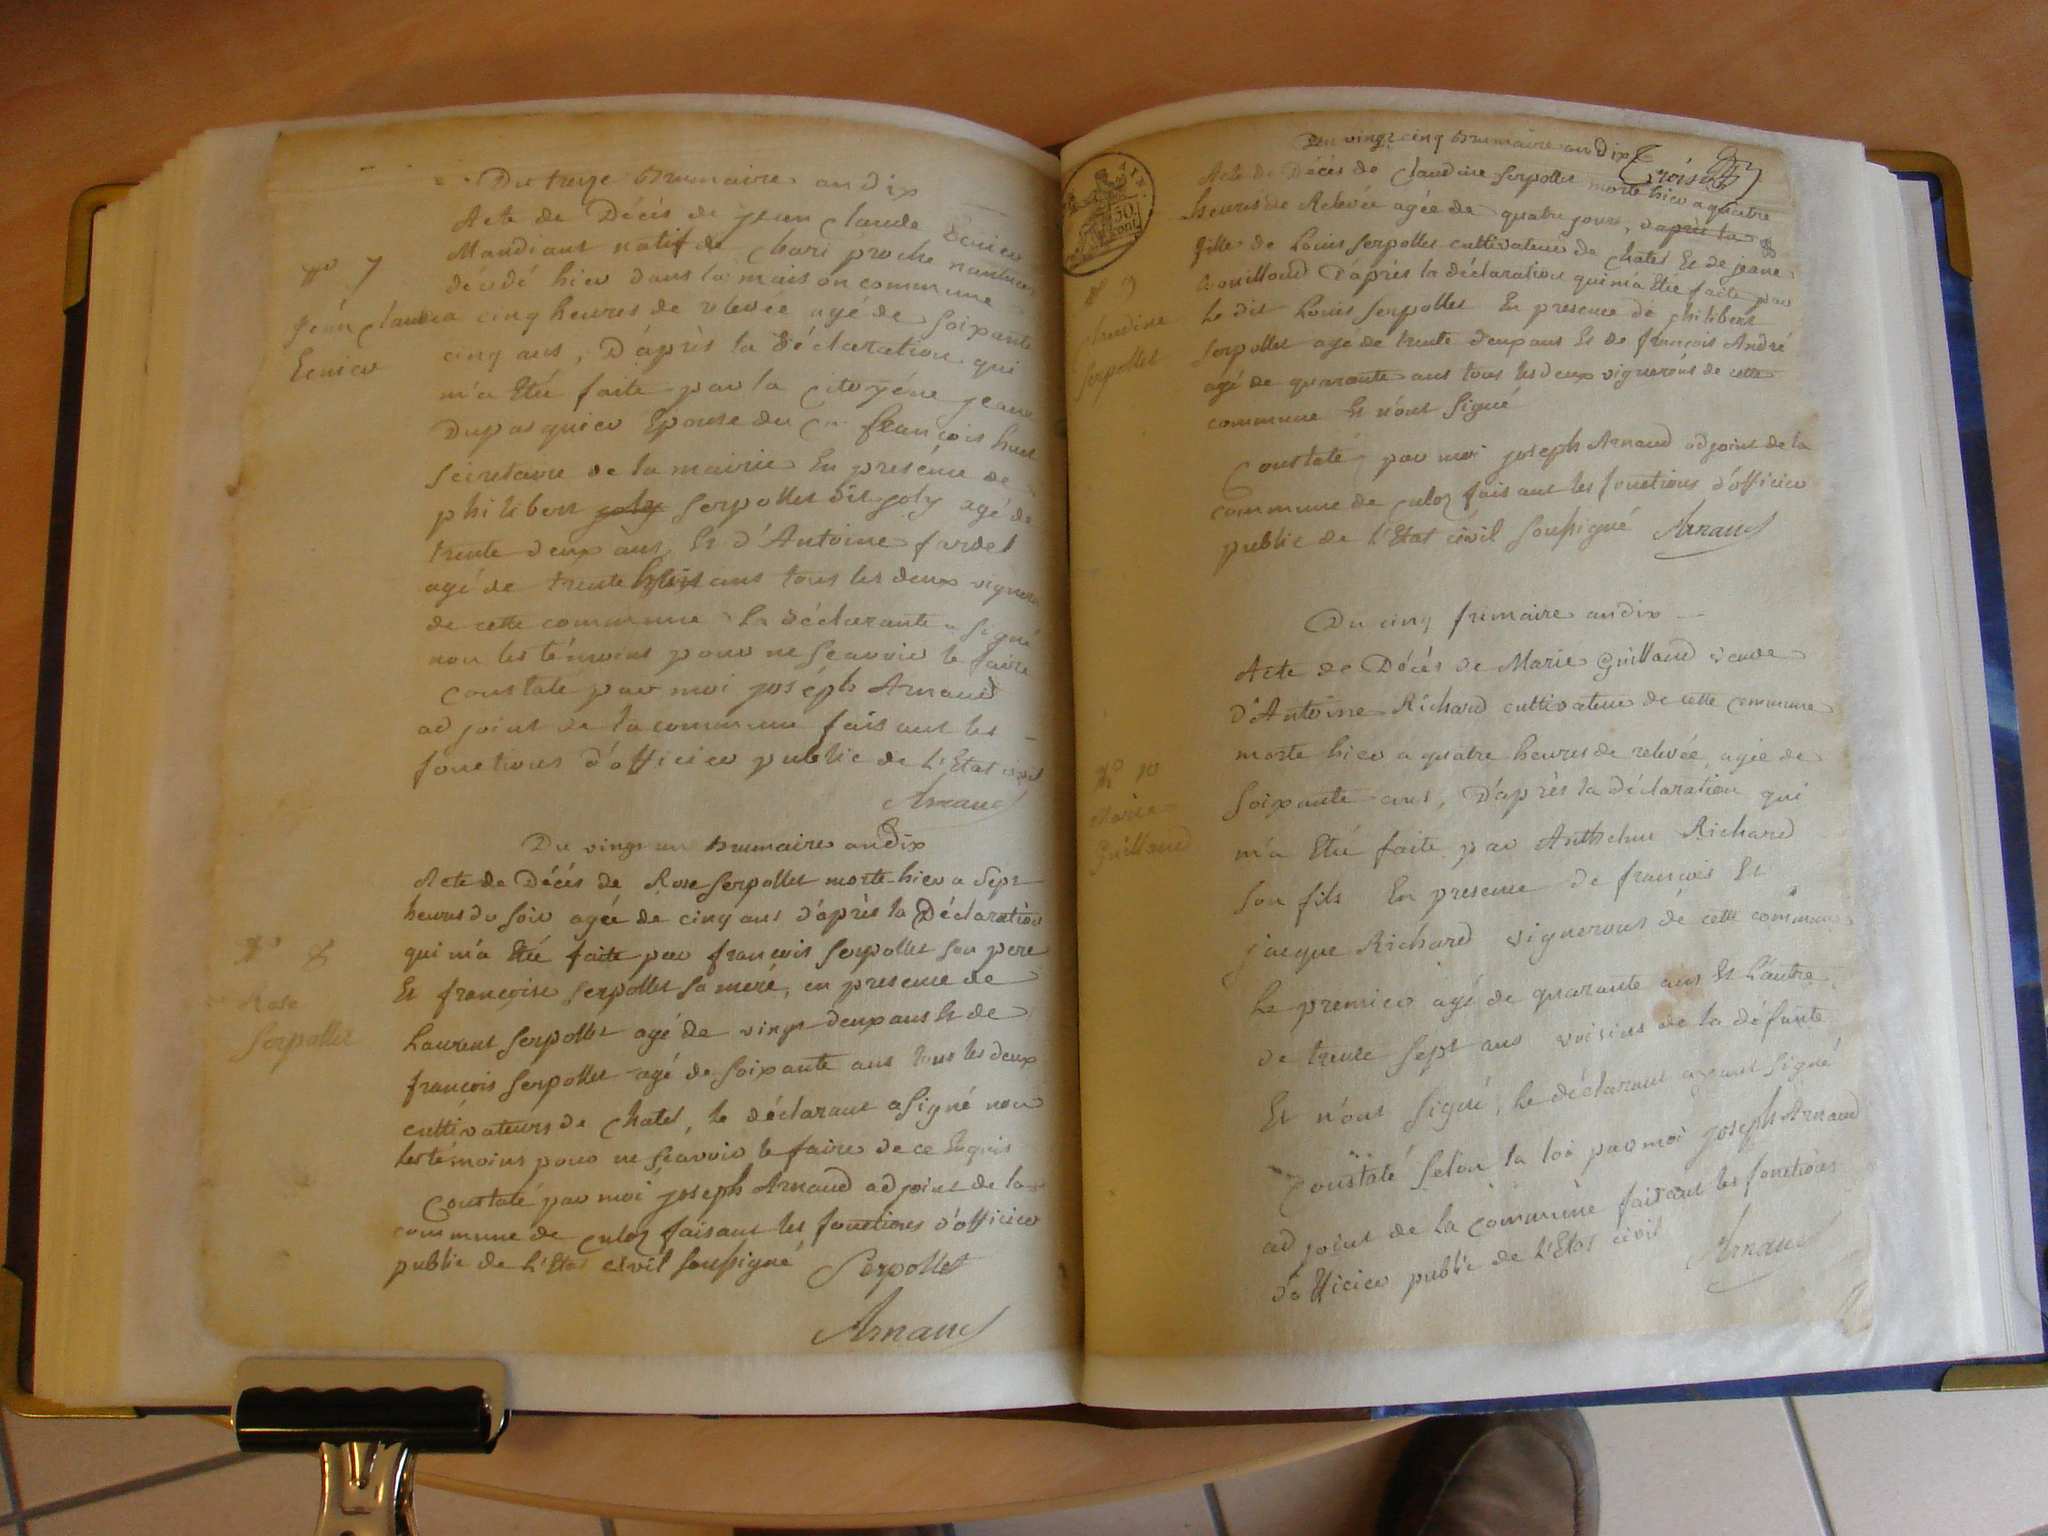 Du treize Brumaire an dix
Acte de Décès de jean Claude
Mandiant natif de Chari proche nantua
décédé hier dans la maison commune
N° 7
jean Claude a cinq heures de relevée agé de soixante
cinq ans, D'après la déclaration qui
m'a Eté faite par la Citoyéne jeane
Dupasquier Epouse du Cn françois huet
Sécretaire de la mairie En presénce de
philibert joly Serpollet dit joly agé de
trente deux ans Et d'Antoine fardel
agé de trente huit ans tous les deux vignerons
de cette commune la déclarante a signé
non les témoins pour ne sçavoir le faire
Constaté par moi joséph Arnaud
adjoint de la commune faisant les
fonctions d'officier public de l'Etat civil
Arnaud
Du vingt un Brumaire an Dix
Acte de Décés de Rose Serpollet morte hier a sept
heures du soir agée de cinq ans d'après la Déclaration
qui m'a Eté faite par françois Serpollet son pere
Et françoise Serpollet sa meré, en presence de
N° 8
Rose
Serpollet
Laurent Serpollet agé de vingt deux ans Et de
françois Serpollet agé de soixante ans tous les deux
cultivateurs de Chatel, le déclarant a signé non
les témoins pour ne sçavoir le faire de ce Enquis
Constaté par moi joseph Arnaud adjoint de la
commune de Culoz faisant les fonctions d'officier
public de l'Etat civil soussigné Serpollet
Arnaud
Du vingt cinq Brumaire an Dix
Trois
Acte de Décès de Claudine Serpollet morte hier a quatre
heures de Relevée agée de quatre jours, d'après la
fille de Louis Serpollet cultivateur de Chatel Et de jeane
Gouilloud D'après la déclaration qui m'a Etée faite par
N° 9
Claudine
Serpollet
Le dit Louis Serpollet En presence de philibert
Serpollet agé de trente deux ans Et de françois André
agé de quarante ans tous les deux vignerons de cette
commune Et n'ont Signé
Constaté par moi joseph Arnaud adjoint de la
commune de Culoz faisant les fonctions d'officier
public de l'Etat civil soussigné Arnaud
Du cinq frimaire an dix
Acte de Décés de Marie Guilland veuve
D'Antoine Richard cultivateur de cette commune
morte hier a quatre heures de relevée, agée de
N° 10
Marie
Guilland
Soixante ans, D'après la déclaration qui
m'a Eté faite par Anthelme Richard
son fils En presence de francois Et
jacque Richard vignerons de cette commune
Le premier agé de quarante ans Et l'autre
de trente sept ans voisins de la défunte
Et n'ont signé, le déclarant ayant signé
Constaté selon la loi par moi joseph Arnaud
adjoint de la commune faisant les fonctions
d'officier public de l'Etat civil
Arnaud